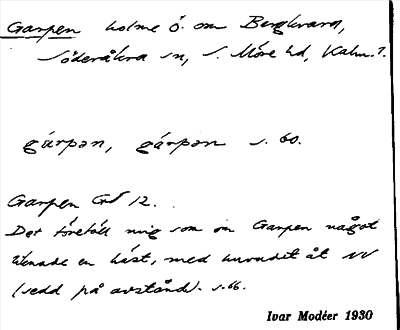 Garpen holme ö. om Bergkvara,
Söderåkra sn, S. Möre hd, Kalm. l.
gárpən, gárpən s. 60.
Garpen GS 12.
Det föreföll mig som om Garpen något
liknade en häst, med huvudet åt NV
(sedd på avstånd). s. 66.
Ivar Modéer 1930